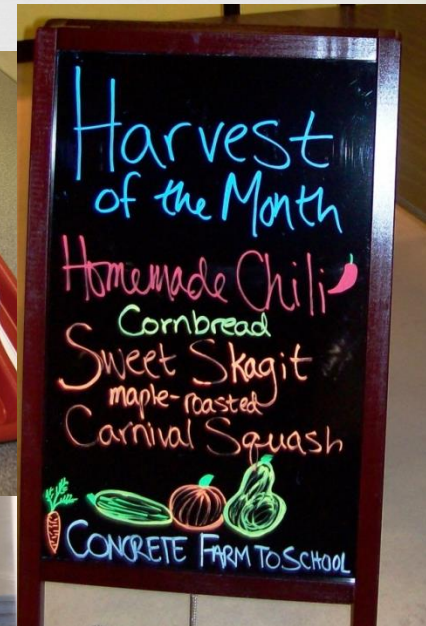 Harvest
of the Month
Homemade Chili
Cornbread
Sweet Skagit
maple-roasted
Carnival Squash
CONCRETE FARM TO SCHOOL